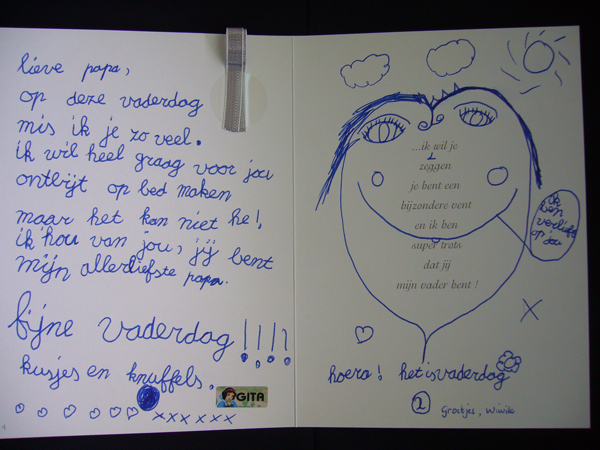 lieve papa,
op deze vaderdag
mis ik je zo veel.
ik wil heel graag voor jou
ontbijt op bed maken
maar het kan niet he!
ik hou van jou, jij bent
mijn allerliefste papa.
fijne vaderdag!!!!
kusjes en knuffels.
xxxxxx
GITA
...ik wil je
zeggen
je bent een
bijzondere vent
en ik ben
super trots
dat jij
mijn vader bent !
ik
ben
verliefd
op jou
X
hoera! het is vaderdag
Groetjes,